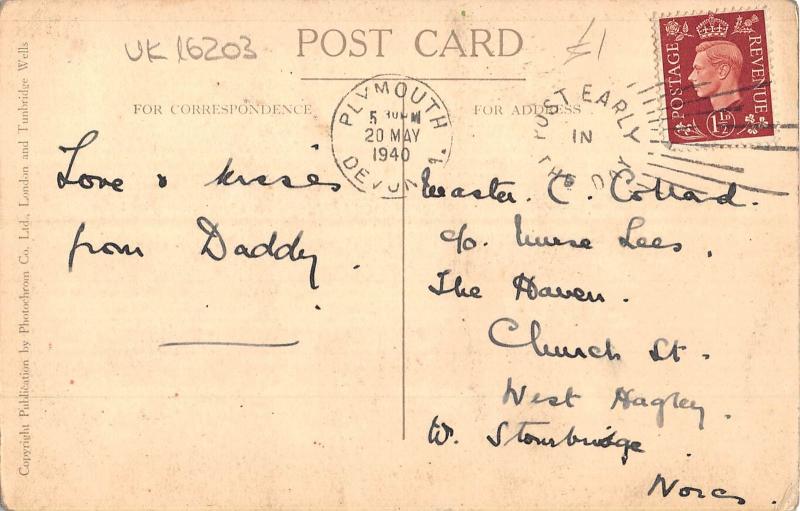 UK 16203
POST CARD
£1
FOR CORRESPONDENCE
FOR ADDRESS
PLYMOUTH
5 30PM
20 MAY
1940
DEVON
POST EARLY
IN
THE DAY
POSTAGE
REVENUE
1½D
Love & kisses
from Daddy.
Master. C. Collard.
c/o. Nurse Lees,
The Haven.
Church St.
West Hagley.
W. Stourbridge.
Worcs.
Copyright Publication by Photochrom Co, Ltd., London and Tunbridge Wells